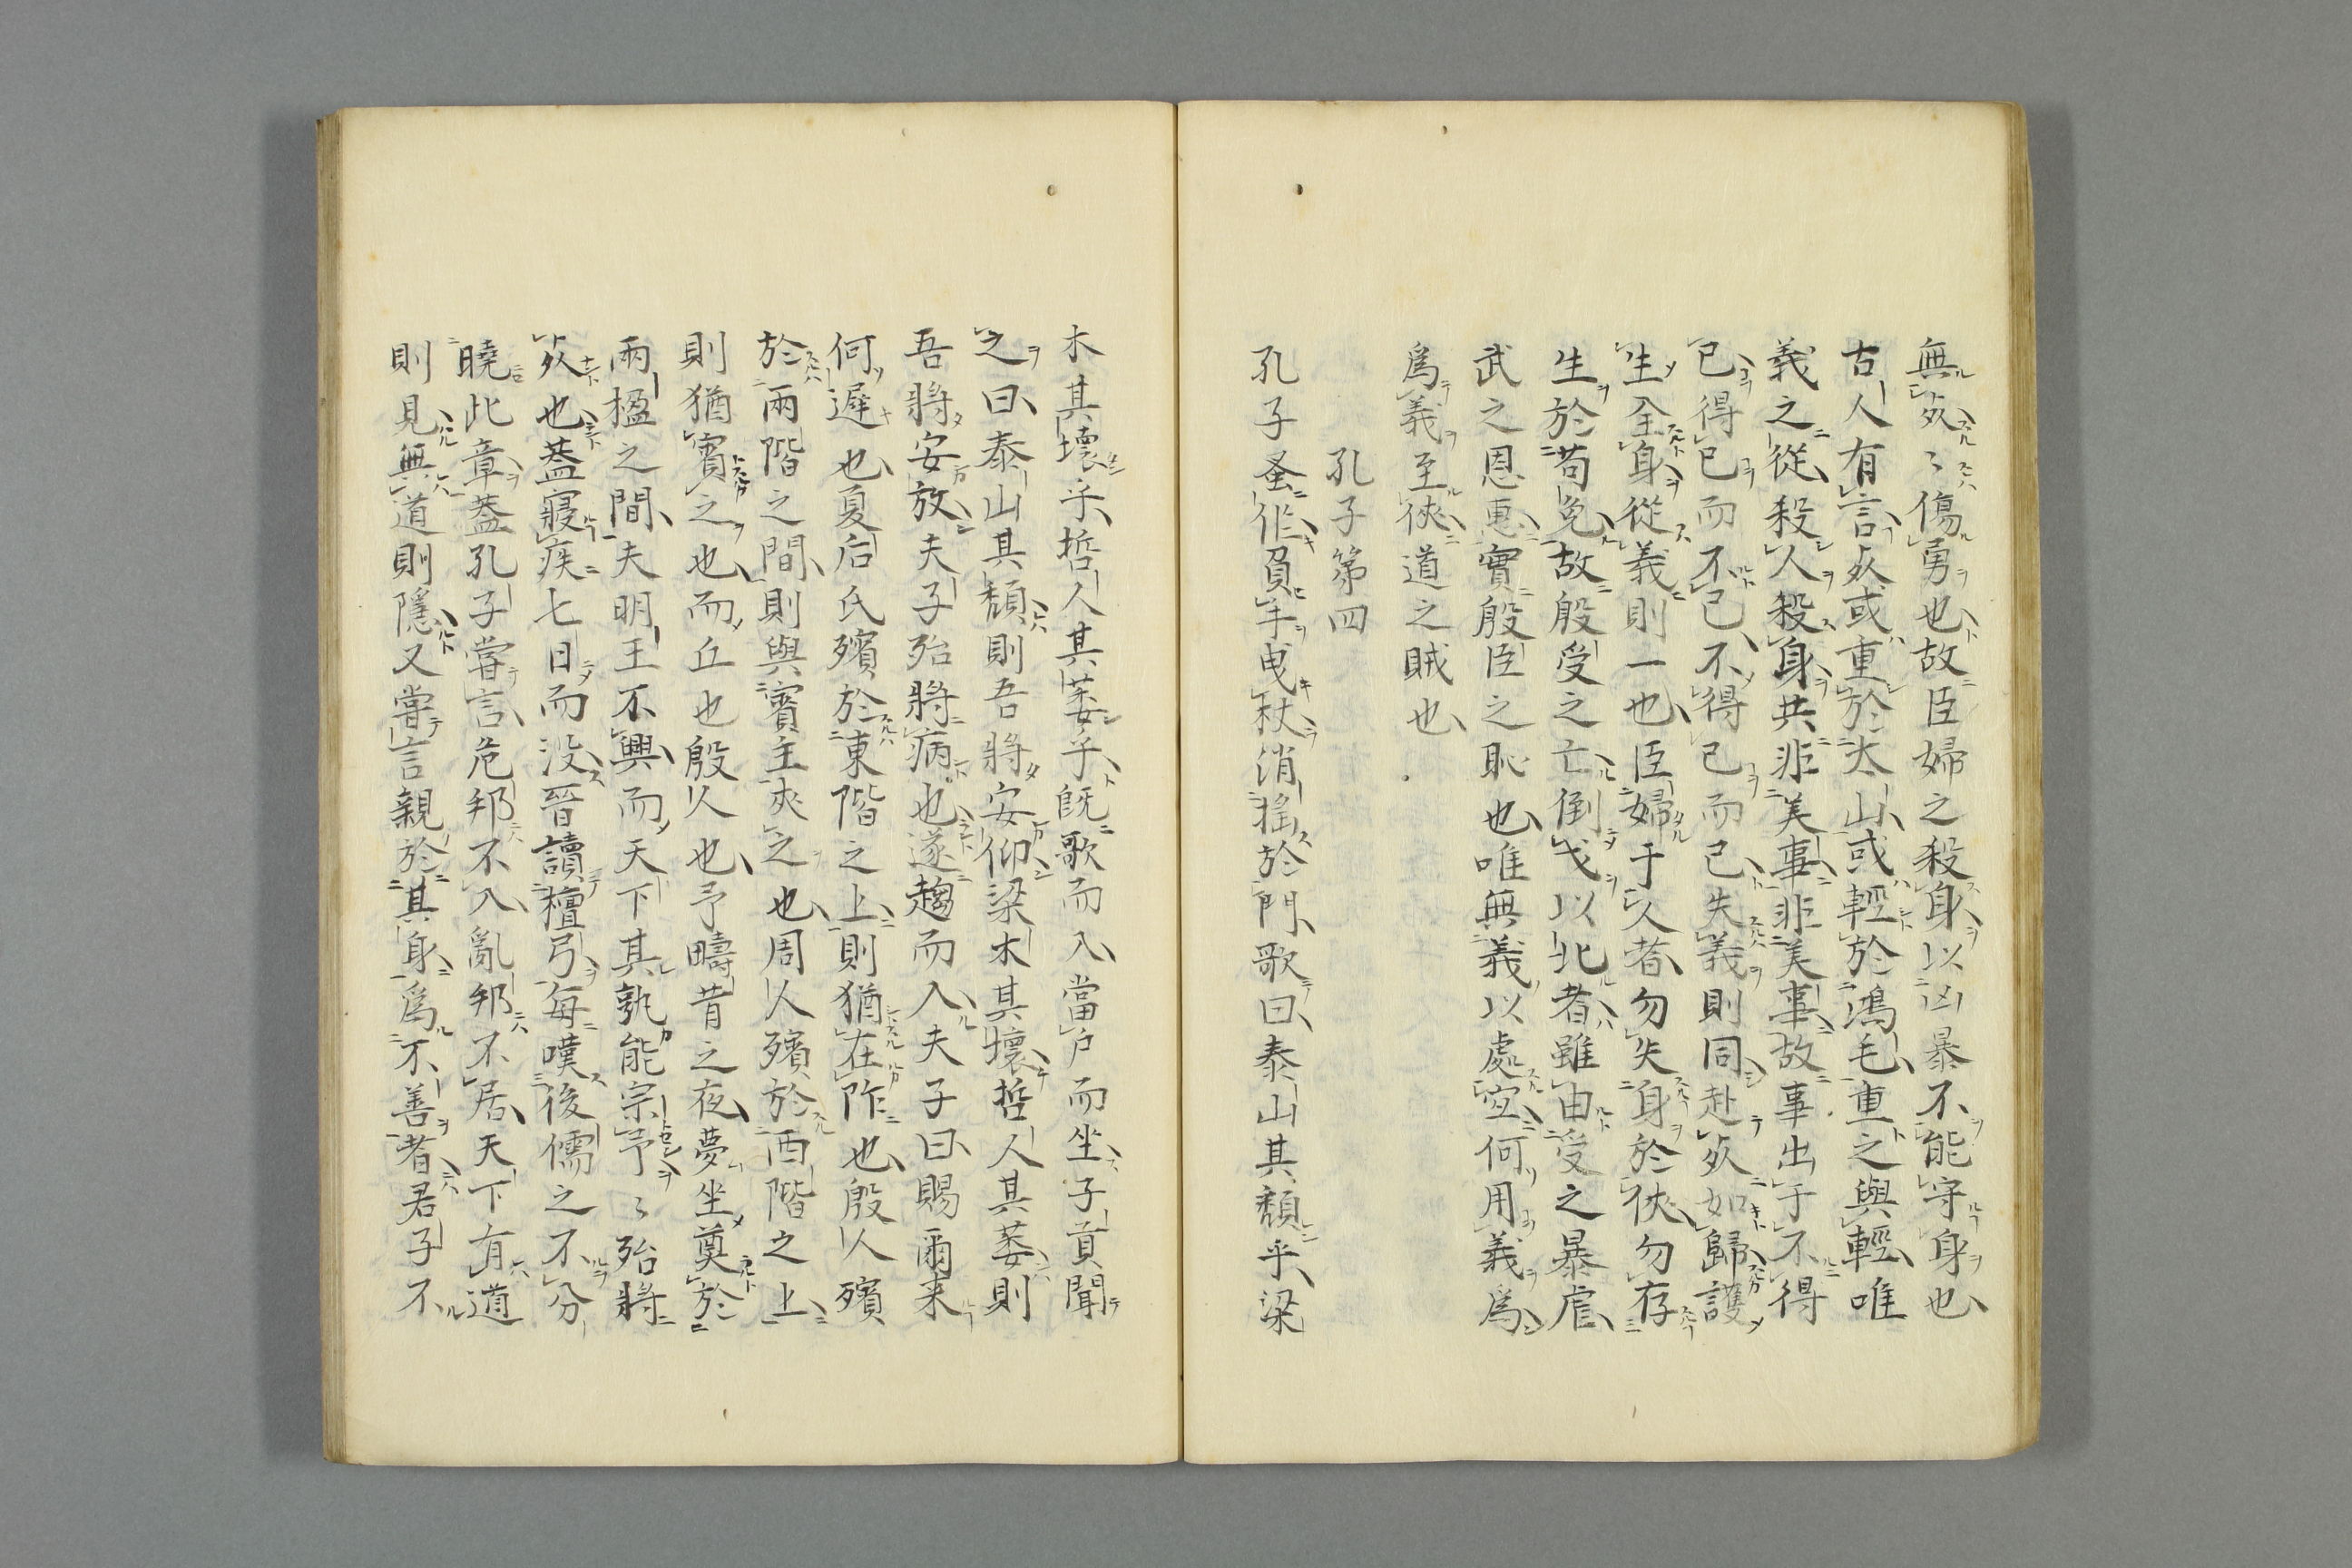 無死〻傷勇也故臣婦之殺身以凶暴不能守身也
古人有言死或重於太山或輕於鴻毛重之與輕唯
義之從殺人殺身共非美事非美事故事出于不得
已得已而不已不得已而已失義則同赴死如歸護
生全身從義則一也臣婦于人者勿失身於俠勿存
生於苟免故殷受之亡倒戈以北者雖由受之暴虐
武之恩惠實殷臣之恥也唯無義以處空何用義爲
爲義至俠道之賊也
孔子第四
孔子蚤作負手曳杖消搖於門歌曰泰山其頽乎梁
木其壞乎哲人其萎乎既歌而入當戶而坐子貢聞
之曰泰山其頽則吾將安仰梁木其壞哲人其萎則
吾將安放夫子殆將病也遂趨而入夫子曰賜爾来
何遲也夏后氏殯於東階之上則猶在阼也殷人殯
於兩階之間則與賓主夾之也周人殯於西階之上
則猶賓之也而丘也殷人也予疇昔之夜夢坐奠於
兩楹之間夫明王不興而天下其孰能宗予〻殆將
死也蓋寢疾七日而沒晉讀檀弓每嘆後儒之不分
曉此章蓋孔子嘗言危邦不入亂邦不居天下有道
則見無道則隱又嘗言親於其身爲不善者君子不